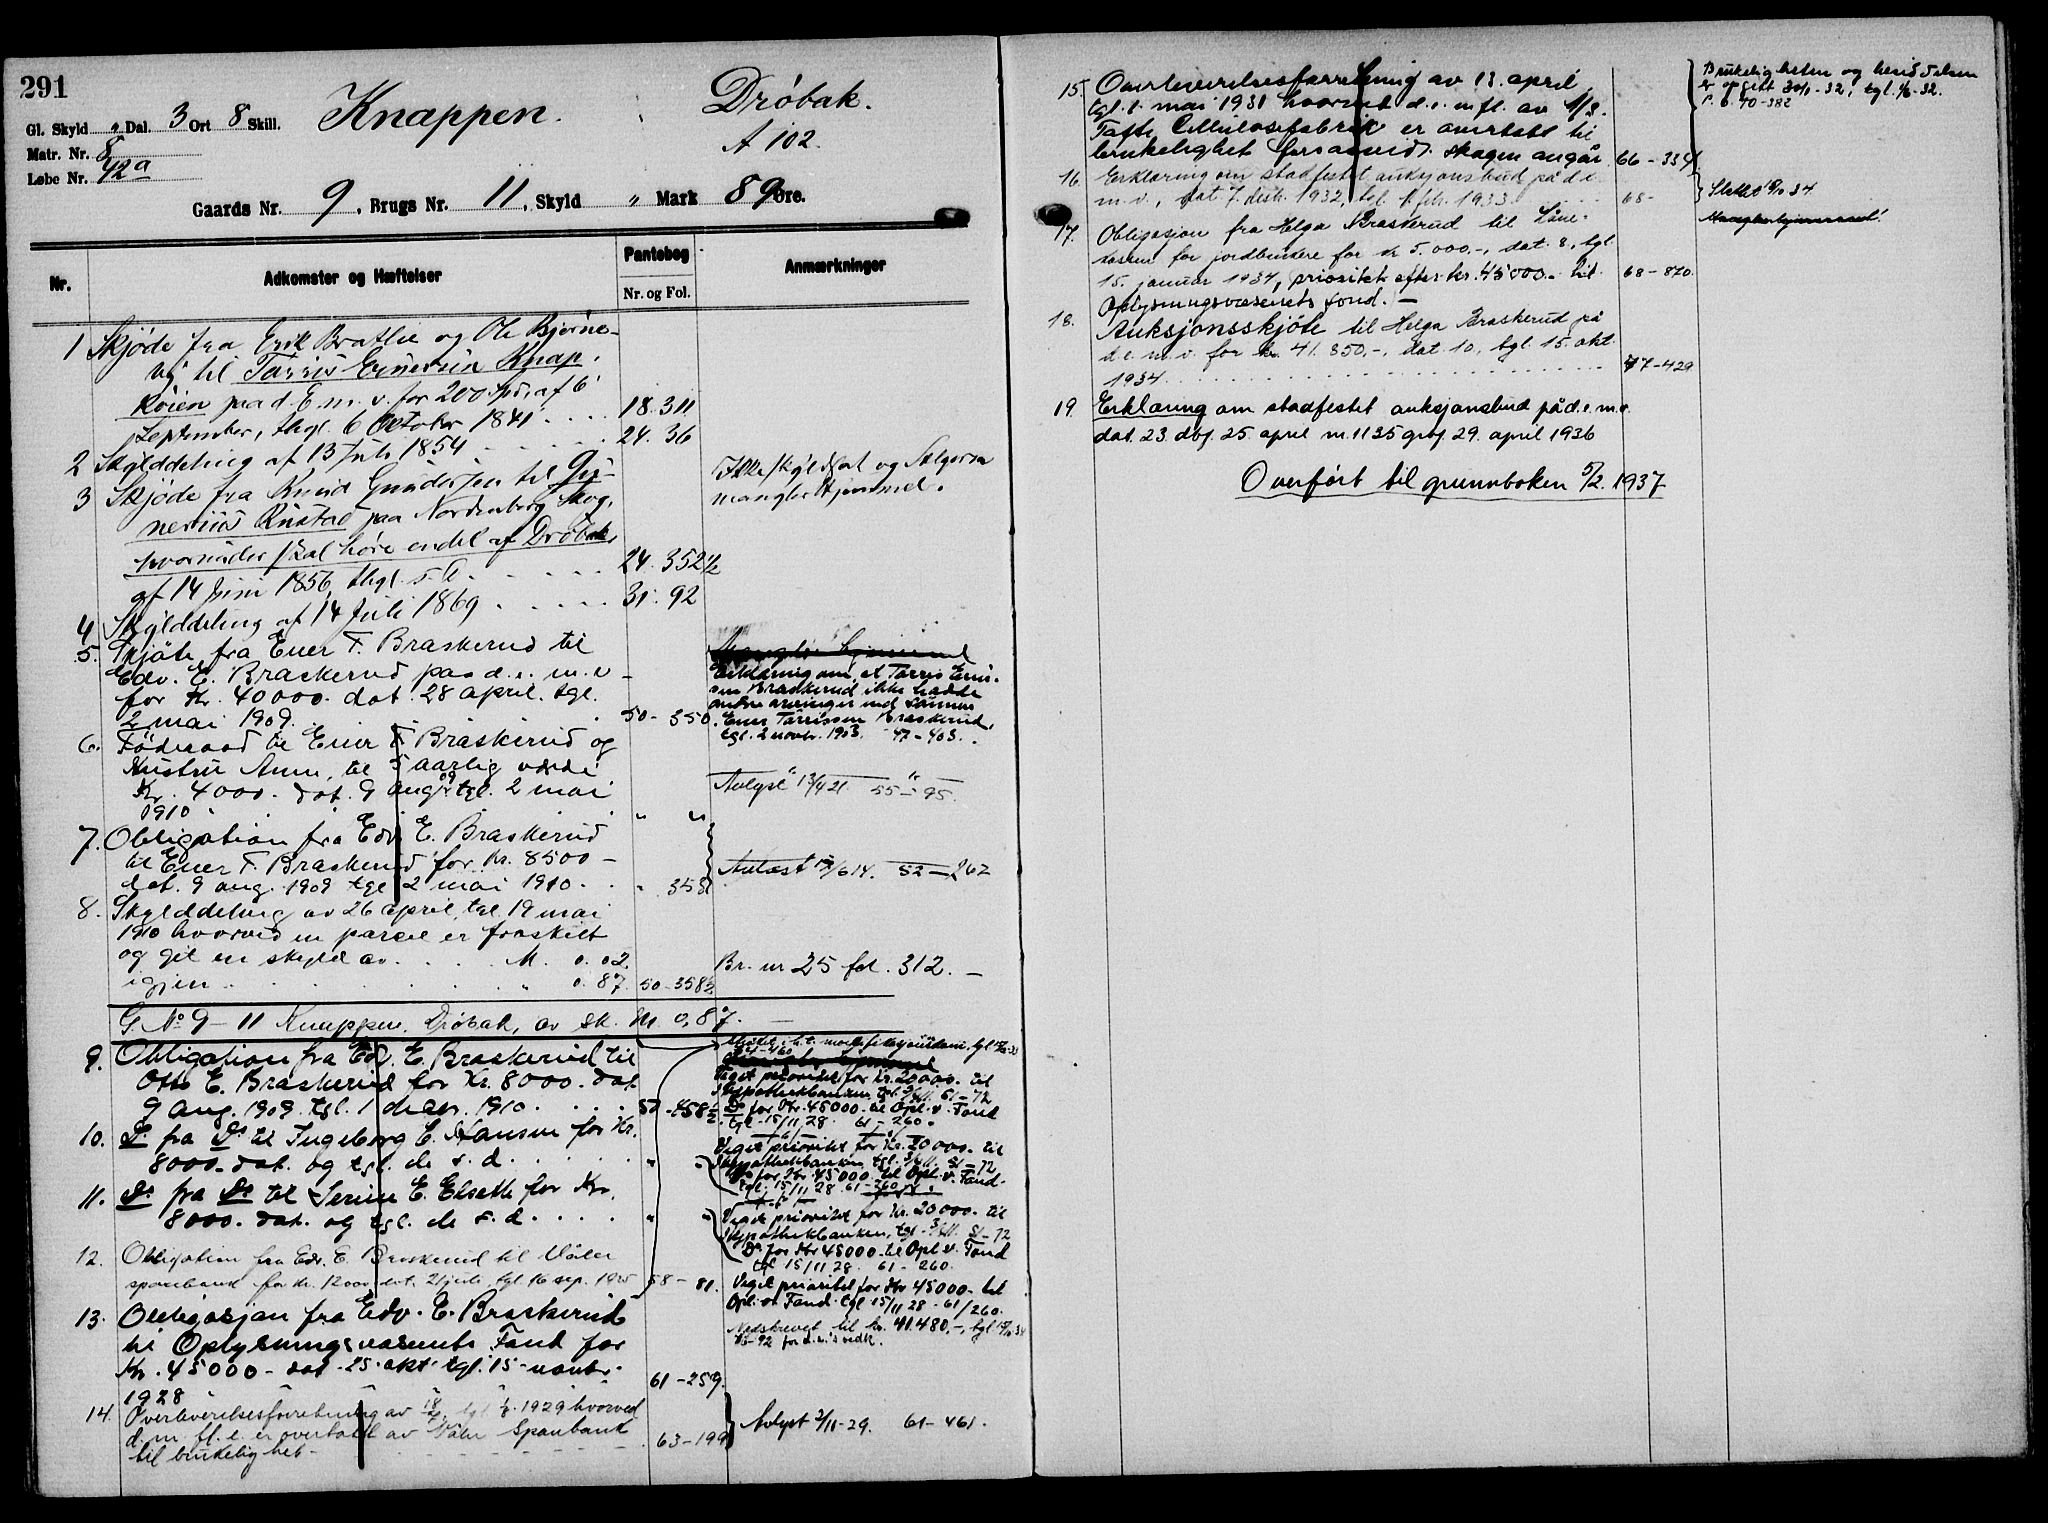 291
Gl. Skyld " Dal. 3 Ort 8 Skill.
Knappen.
Drøbak.
A 102.
Matr. Nr. 8
Løbe Nr. 42a
Gaards Nr. 9, Brugs Nr. 11, Skyld " Mark 89 Øre.
Nr.
Adkomster og Hæftelser
Pantebog
Nr. og Fol.
Anmærkninger
1 Skjøde fra Erik Bratlie og Ole Bjørne-
vej til Tarris Enersen Knap-
køien paa d. E. m. v. for 200 Spd. af 6
September, thgl. 6 October 1841 . . . 18. 311
2 Skylddeling af 13 Juli 1854 . . . 24. 36
3 Skjøde fra Knud Gundersen til Gu-
nerius Rustad paa Nordenberg Skog,
hvorunder skal høre endel af Drøbak,
af 14 Juni 1856, thgl. s. d. . . . 24. 352½
Ikke skyldsat og Sælgeren
mangler Hjemmel.
4 Skylddeling af 14 Juli 1869 . . . 31. 92
5. Skjøte fra Ener T. Braskerud til
Edv. E. Braskerud paa d. e. m. v.
for Kr. 40000. dat. 28 april. tgl.
2 mai 1909. . 50 - 350.
Mangler hjemmel
Erklæring om, at Tarris Ener-
sen Braskerud ikke hadde
andre arvinger end sønnen
Ener Tarrissen Braskerud,
tgl. 2 novbr. 1903. 47 - 403.
6. Føderaad til Ener T. Braskerud og
Hustru Anne, til 5 aarlig værdi
Kr. 4000. dat. 9 aug. 09 tgl. 2 mai
1910 . . . " "
Avlyst 13/4 21 55 - 95.
7. Obligation fra Edv. E. Braskerud
til Ener T. Braskerud for Kr. 8500 -
dat. 9 aug. 1909 tgl. 2 mai 1910. . " 358
Avlæst 13/6 14. 52 - 262
8. Skylddeling av 26 april, tgl. 19 mai
1910 hvorved en parcel er fraskilt
og git en skyld av . . . M. 0.02.
igjen . . . " 0.87. 50 - 358½
Br. nr 25 fol. 312. -
G. No 9 - 11 Knappen, Drøbak, av sk. M 0,87. -
9. Obligation fra Edv. E. Braskerud til
Otto E. Braskerud for Kr. 8000. dat
9 aug. 1909. tgl. 1 decbr. 1910. . . . 50 - 458½
Veget prioritet for Kr. 20000. til
Hypothekbanken tgl. 51 - 72
Do for Kr 45000 til Opl. v. Fond
tgl. 15/11 28. 61 - 260.
10. Do fra Do til Ingeborg E. Hansen for Kr.
8000. dat. og tgl. de s. d. . . . " "
Veget prioritet for Kr. 20000. til
Hypothekbanken tgl. 51 - 72
Do for Kr 45000 til Opl. v. Fond
tgl. 15/11 28 61 - 260
11. Do fra Do til Serine E. Elseth for Kr.
8000. dat. og tgl. de s. d. . . . " "
Veget prioritet for Kr. 20000. til
Hypothekbanken, tgl. 51 - 72
Do for Kr 45000 til Opl. v. Fond
tgl. 15/11 28. 61 - 260.
12. Obligation fra Edv. E. Braskerud til Våler
sparebank for kr. 12000, dat. 21 juli, tgl. 16 sep. 1925 58 - 81.
Veget prioritet for Kr 45000 - til
Opl. v. Fond. tgl 15/11 28 - 61/260.
13. Obligasjon fra Edv. E. Braskerud
til Oplysningsvæsenets Fond for
Kr. 45000 - dat. 25. okt. tgl. 15 - novbr.
1928 61 - 259.
Nedskrevet til kr. 41.480,-, tgl.
14. Overleverelsesforretning av tgl. 1929 hvorved
d. m. fl. e. er overtatt av Våler Sparebank
til brukelighet - - - - 63 - 199
Avlyst 2/11 - 29. 61 - 461.
15. Overleverelsesforretning av 13. april,
tgl. 1. mai 1931 hvorved d. e. m fl. av A/S
Tofte Cellulosefabrik er overtatt til
brukelighet forsaavidt skogen angår. 66 - 334
Brukeligheten og heridelsen
er opgitt 30/1 - 32, tgl. 1/2 - 32.
P. b. 70 - 382
16. Erklæring om stadfestet auksjonsbud på d. e.
m. v., dat. 7. desbr. 1932, tgl. 1. febr. 1933 . . . 68 -
Slettet 15/10 34
17. Obligasjon fra Helga Braskerud til Låne-
kassen for jordbrukere for kr 5.000.-, dat. 8, tgl.
15. januar 1934, prioritet efter kr. 45000.- til 68 - 870.
Oplysningsvæsenets fond. -
Mangler hjemmel!
18. Auksjonsskjøte til Helga Braskerud på
d. e. m. v. for kr. 41.850,-, dat. 10, tgl. 15. okt.
1934 . . . 77 - 429
19. Erklæring om stadfestet auksjonsbud på d. e. m. v.
dat. 23. dbf. 25. april nr. 1135 grbf. 29. april 1936
Overført til grunnboken 5/2. 1937